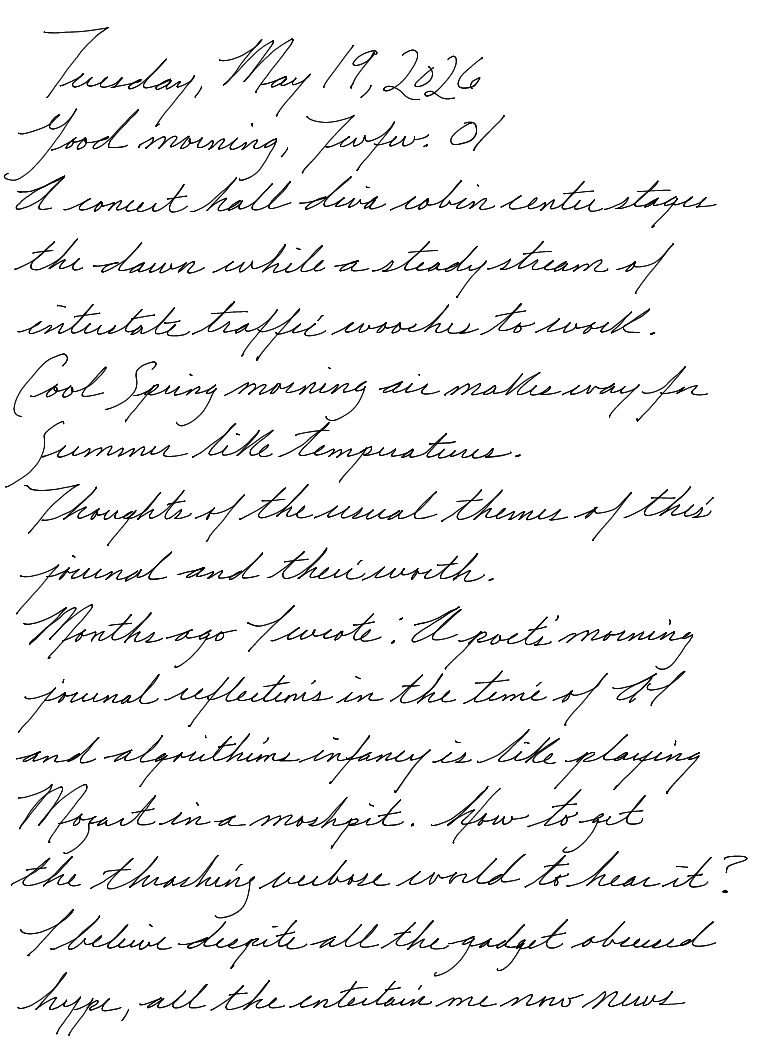 Tuesday, May 19, 2026
Good morning, Twfw. 01
A concert hall diva robin center stages
the dawn while a steady stream of
interstate traffic wooshes to work.
Cool Spring morning air makes way for
Summer like temperatures.
Thoughts of the usual themes of this
journal and their worth.
Months ago I wrote: A poet's morning
journal reflections in the time of AI
and algorithims infancy is like playing
Mozart in a moshpit. How to get
the thrashing verbose world to hear it?
I beleive despite all the gadget obsessed
hype, all the entertain me now news